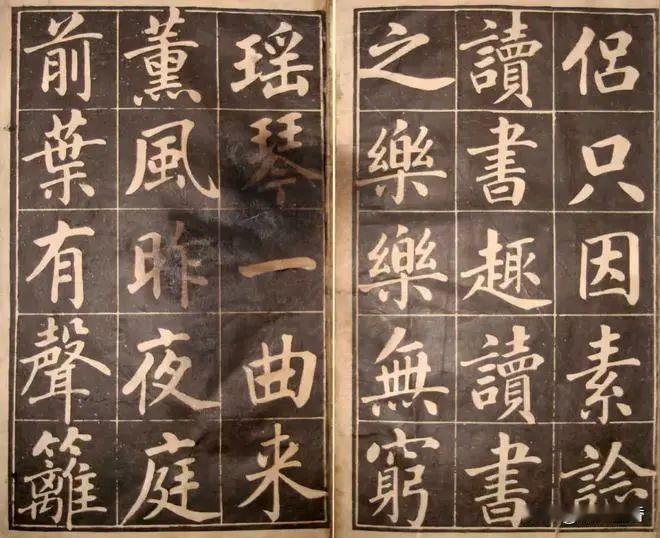 侶只因素諗
讀書趣讀書
之樂樂無窮
瑶琴一曲来
薰風昨夜庭
前葉有聲籬